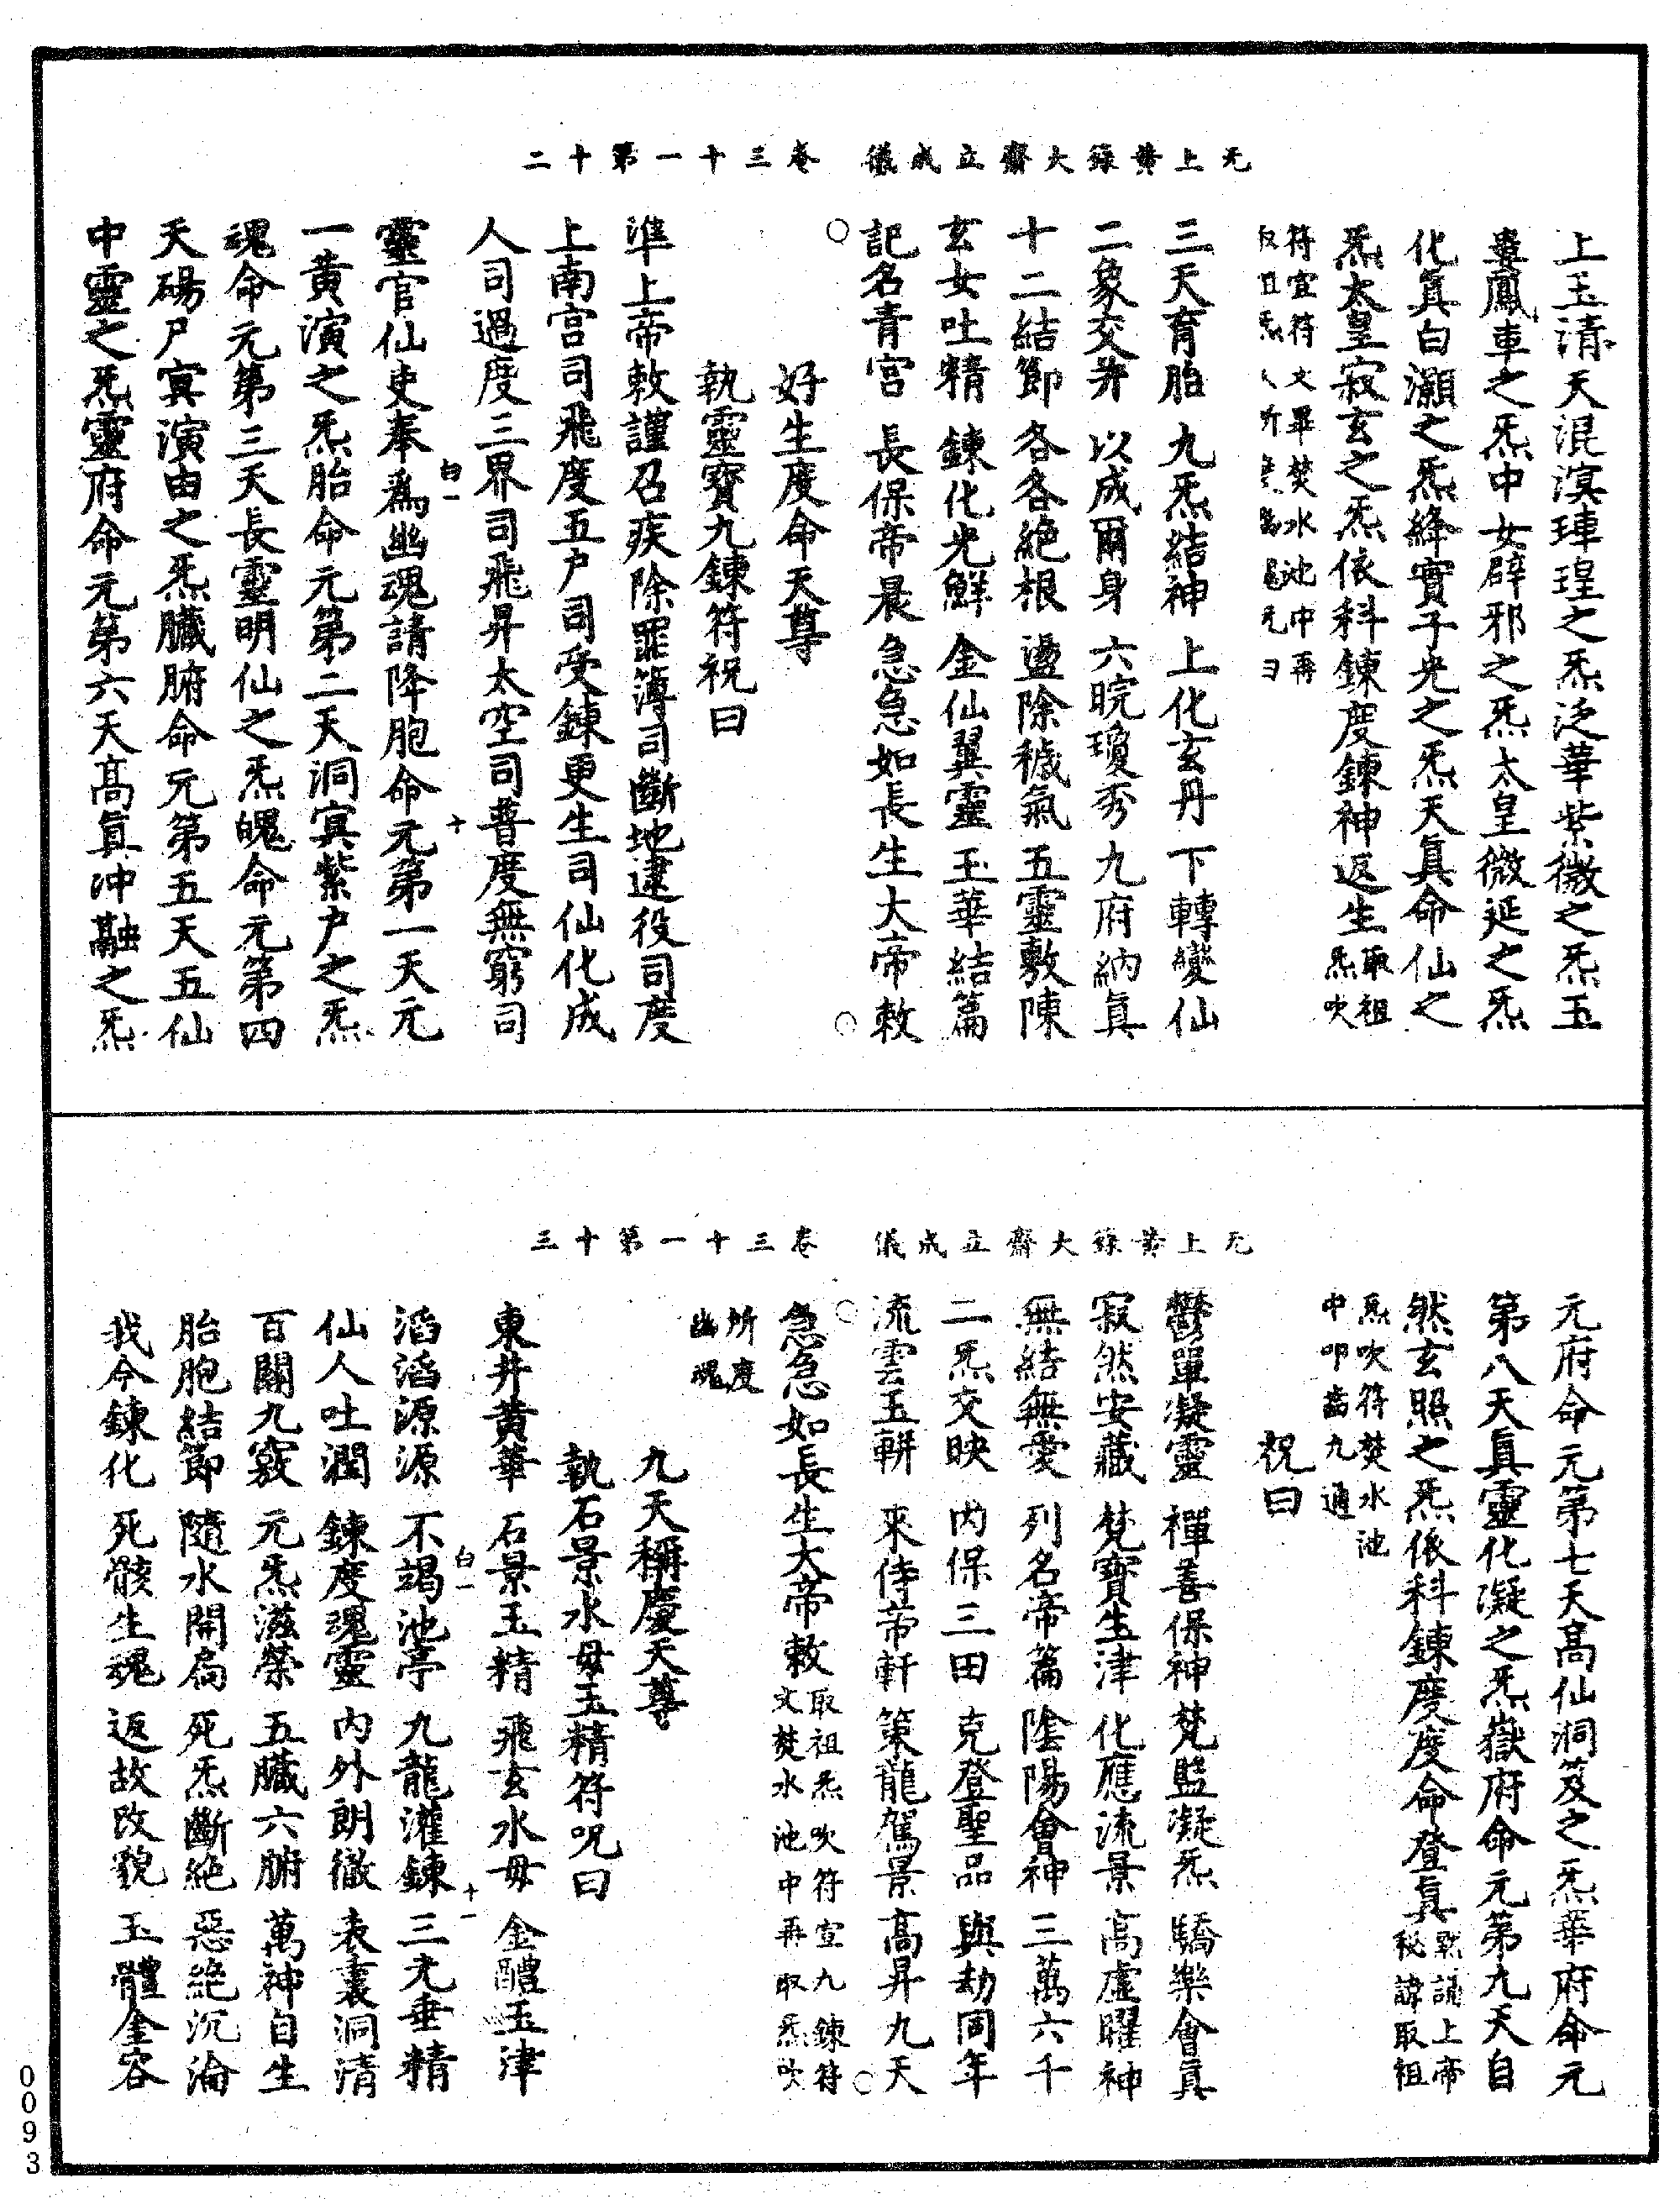 无上黃籙大齋立成儀 卷三十一第十二
上玉清天混溟琿瑝之炁泛華紫微之炁玉
鳳車之炁中女辟邪之炁太皇微延之炁
化真白灝之炁絳實子光之炁天真命仙之
炁太皇寂玄之炁依科鍊度鍊神返生取祖炁吹
符宣符文畢焚水池中再
三天育胎 九炁結神 上化玄丹 下轉變仙
二象交并 以成爾身 六晥瓊秀 九府納真
十二結節 各各絕根 盪除穢氣 五靈敷陳
玄女吐精 鍊化光鮮 金仙翼靈 玉華結篇
記名青宮 長保帝晨 急急如長生大帝敕
好生度命天尊
執靈寶九鍊符祝曰
準上帝敕謹召疾除罪簿司斷地逮役司度
上南宮司飛度五戶司受鍊更生司仙化成
人司過度三界司飛昇太空司普度無窮司
靈官仙吏奉為幽魂請降胞命元第一天元
一黃演之炁胎命元第二天洞冥紫戶之炁
魂命元第三天長靈明仙之炁魄命元第四
天碭尸冥演由之炁臟腑命元第五天五仙
中靈之炁靈府命元第六天高真沖融之炁
白一
十
无上黃籙大齋立成儀 卷三十一第十三
元府命元第七天高仙洞笈之炁華府命元
第八天真靈化凝之炁嶽府命元第九天自
然玄照之炁依科鍊度度命登真默誦上帝秘諱取祖
炁吹符焚水池中叩齒九通
祝曰
鬱單凝靈 禪善保神 梵監凝炁 驕樂會真
寂然安藏 梵寶生津 化應流景 高虛曜神
無結無愛 列名帝篇 陰陽會神 三萬六千
二炁交映 內保三田 克登聖品 與劫同年
流雲玉軿 來侍帝軒 策龍駕景 高昇九天
急急如長生大帝敕取祖炁吹符宣九鍊符文焚水池中再取炁吹
所度幽魂
九天稱慶天尊
執石景水母玉精符呪曰
東井黃華 石景玉精 飛玄水母 金醴玉津
滔滔源源 不竭池亭 九龍灌鍊 三光垂精
仙人吐潤 鍊度魂靈 內外朗徹 表裏洞清
百關九竅 元炁滋榮 五臟六腑 萬神自生
胎胞結節 隨水開扃 死炁斷絕 惡絕沉淪
我今鍊化 死骸生魂 返故改貌 玉體金容
白一
十一
0093